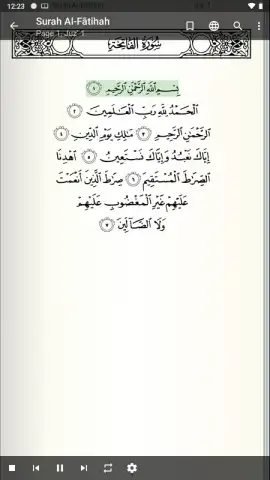 12:23
Surah Al-Fātihah
Page 1, Juz' 1
سُورَةُ الفَاتِحَةِ
بِسْمِ ٱللَّهِ ٱلرَّحْمَٰنِ ٱلرَّحِيمِ ١
ٱلْحَمْدُ لِلَّهِ رَبِّ ٱلْعَٰلَمِينَ ٢
ٱلرَّحْمَٰنِ ٱلرَّحِيمِ ٣ مَٰلِكِ يَوْمِ ٱلدِّينِ ٤
إِيَّاكَ نَعْبُدُ وَإِيَّاكَ نَسْتَعِينُ ٥ ٱهْدِنَا
ٱلصِّرَٰطَ ٱلْمُسْتَقِيمَ ٦ صِرَٰطَ ٱلَّذِينَ أَنْعَمْتَ
عَلَيْهِمْ غَيْرِ ٱلْمَغْضُوبِ عَلَيْهِمْ
وَلَا ٱلضَّآلِّينَ ٧